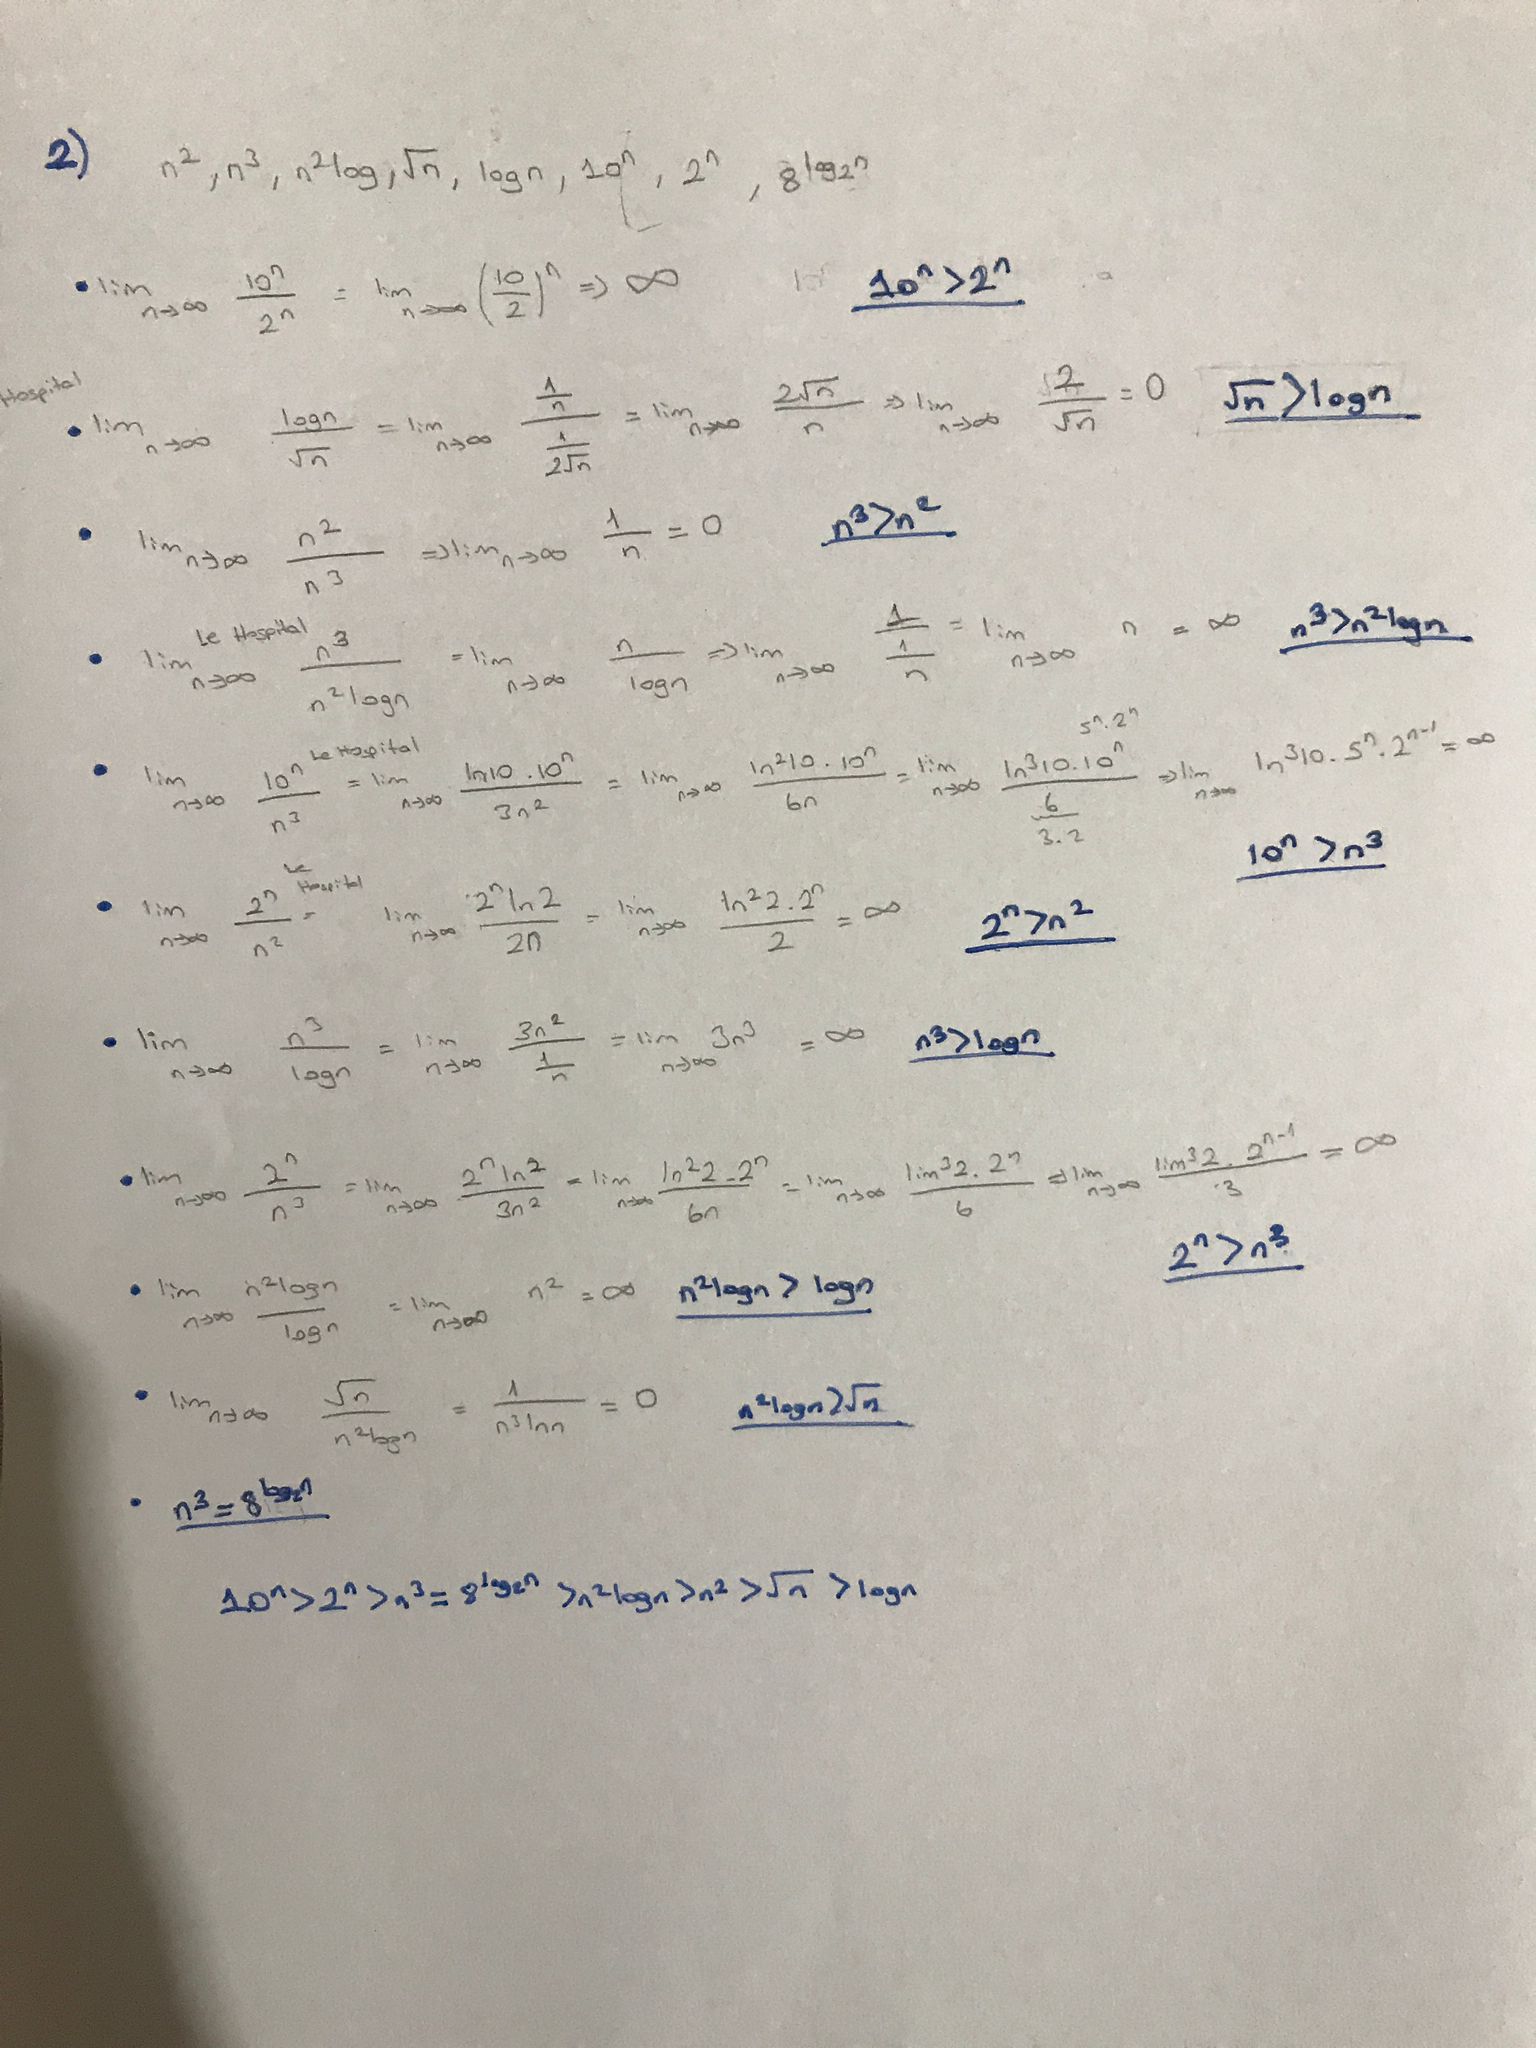 2) n², n³, n²log, √n, logn, 10ⁿ, 2ⁿ, 8^(log₂n)
• lim n→∞ 10ⁿ/2ⁿ = lim n→∞ (10/2)ⁿ => ∞ 10ⁿ>2ⁿ
Hospital
• lim n→∞ logn/√n = lim n→∞ (1/n)/(1/2√n) = lim n→∞ 2√n/n => lim n→∞ 2/√n = 0 √n>logn
• lim n→∞ n²/n³ => lim n→∞ 1/n = 0 n³>n²
Le Hospital
• lim n→∞ n³/n²logn = lim n→∞ n/logn => lim n→∞ 1/(1/n) = lim n→∞ n = ∞ n³>n²logn
5ⁿ.2ⁿ
Le Hospital
• lim n→∞ 10ⁿ/n³ = lim n→∞ ln10.10ⁿ/3n² = lim n→∞ ln²10.10ⁿ/6n = lim n→∞ ln³10.10ⁿ/6 => lim n→∞ ln³10.5ⁿ.2ⁿ⁻¹ = ∞
3.2
10ⁿ>n³
Le Hospital
• lim n→∞ 2ⁿ/n² = lim n→∞ 2ⁿln2/2n = lim n→∞ ln²2.2ⁿ/2 = ∞ 2ⁿ>n²
• lim n→∞ n³/logn = lim n→∞ 3n²/(1/n) = lim n→∞ 3n³ = ∞ n³>logn
• lim n→∞ 2ⁿ/n³ = lim n→∞ 2ⁿln2/3n² = lim n→∞ ln²2.2ⁿ/6n = lim n→∞ lim³2.2ⁿ/6 => lim n→∞ lim³2.2ⁿ⁻¹/3 = ∞
2ⁿ>n³
• lim n→∞ n²logn/logn = lim n→∞ n² = ∞ n²logn > logn
• lim n→∞ √n/n²logn = 1/n³lnn = 0 n²logn>√n
• n³=8^(log₂n)
10ⁿ>2ⁿ>n³=8^(log₂n)>n²logn>n²>√n>logn